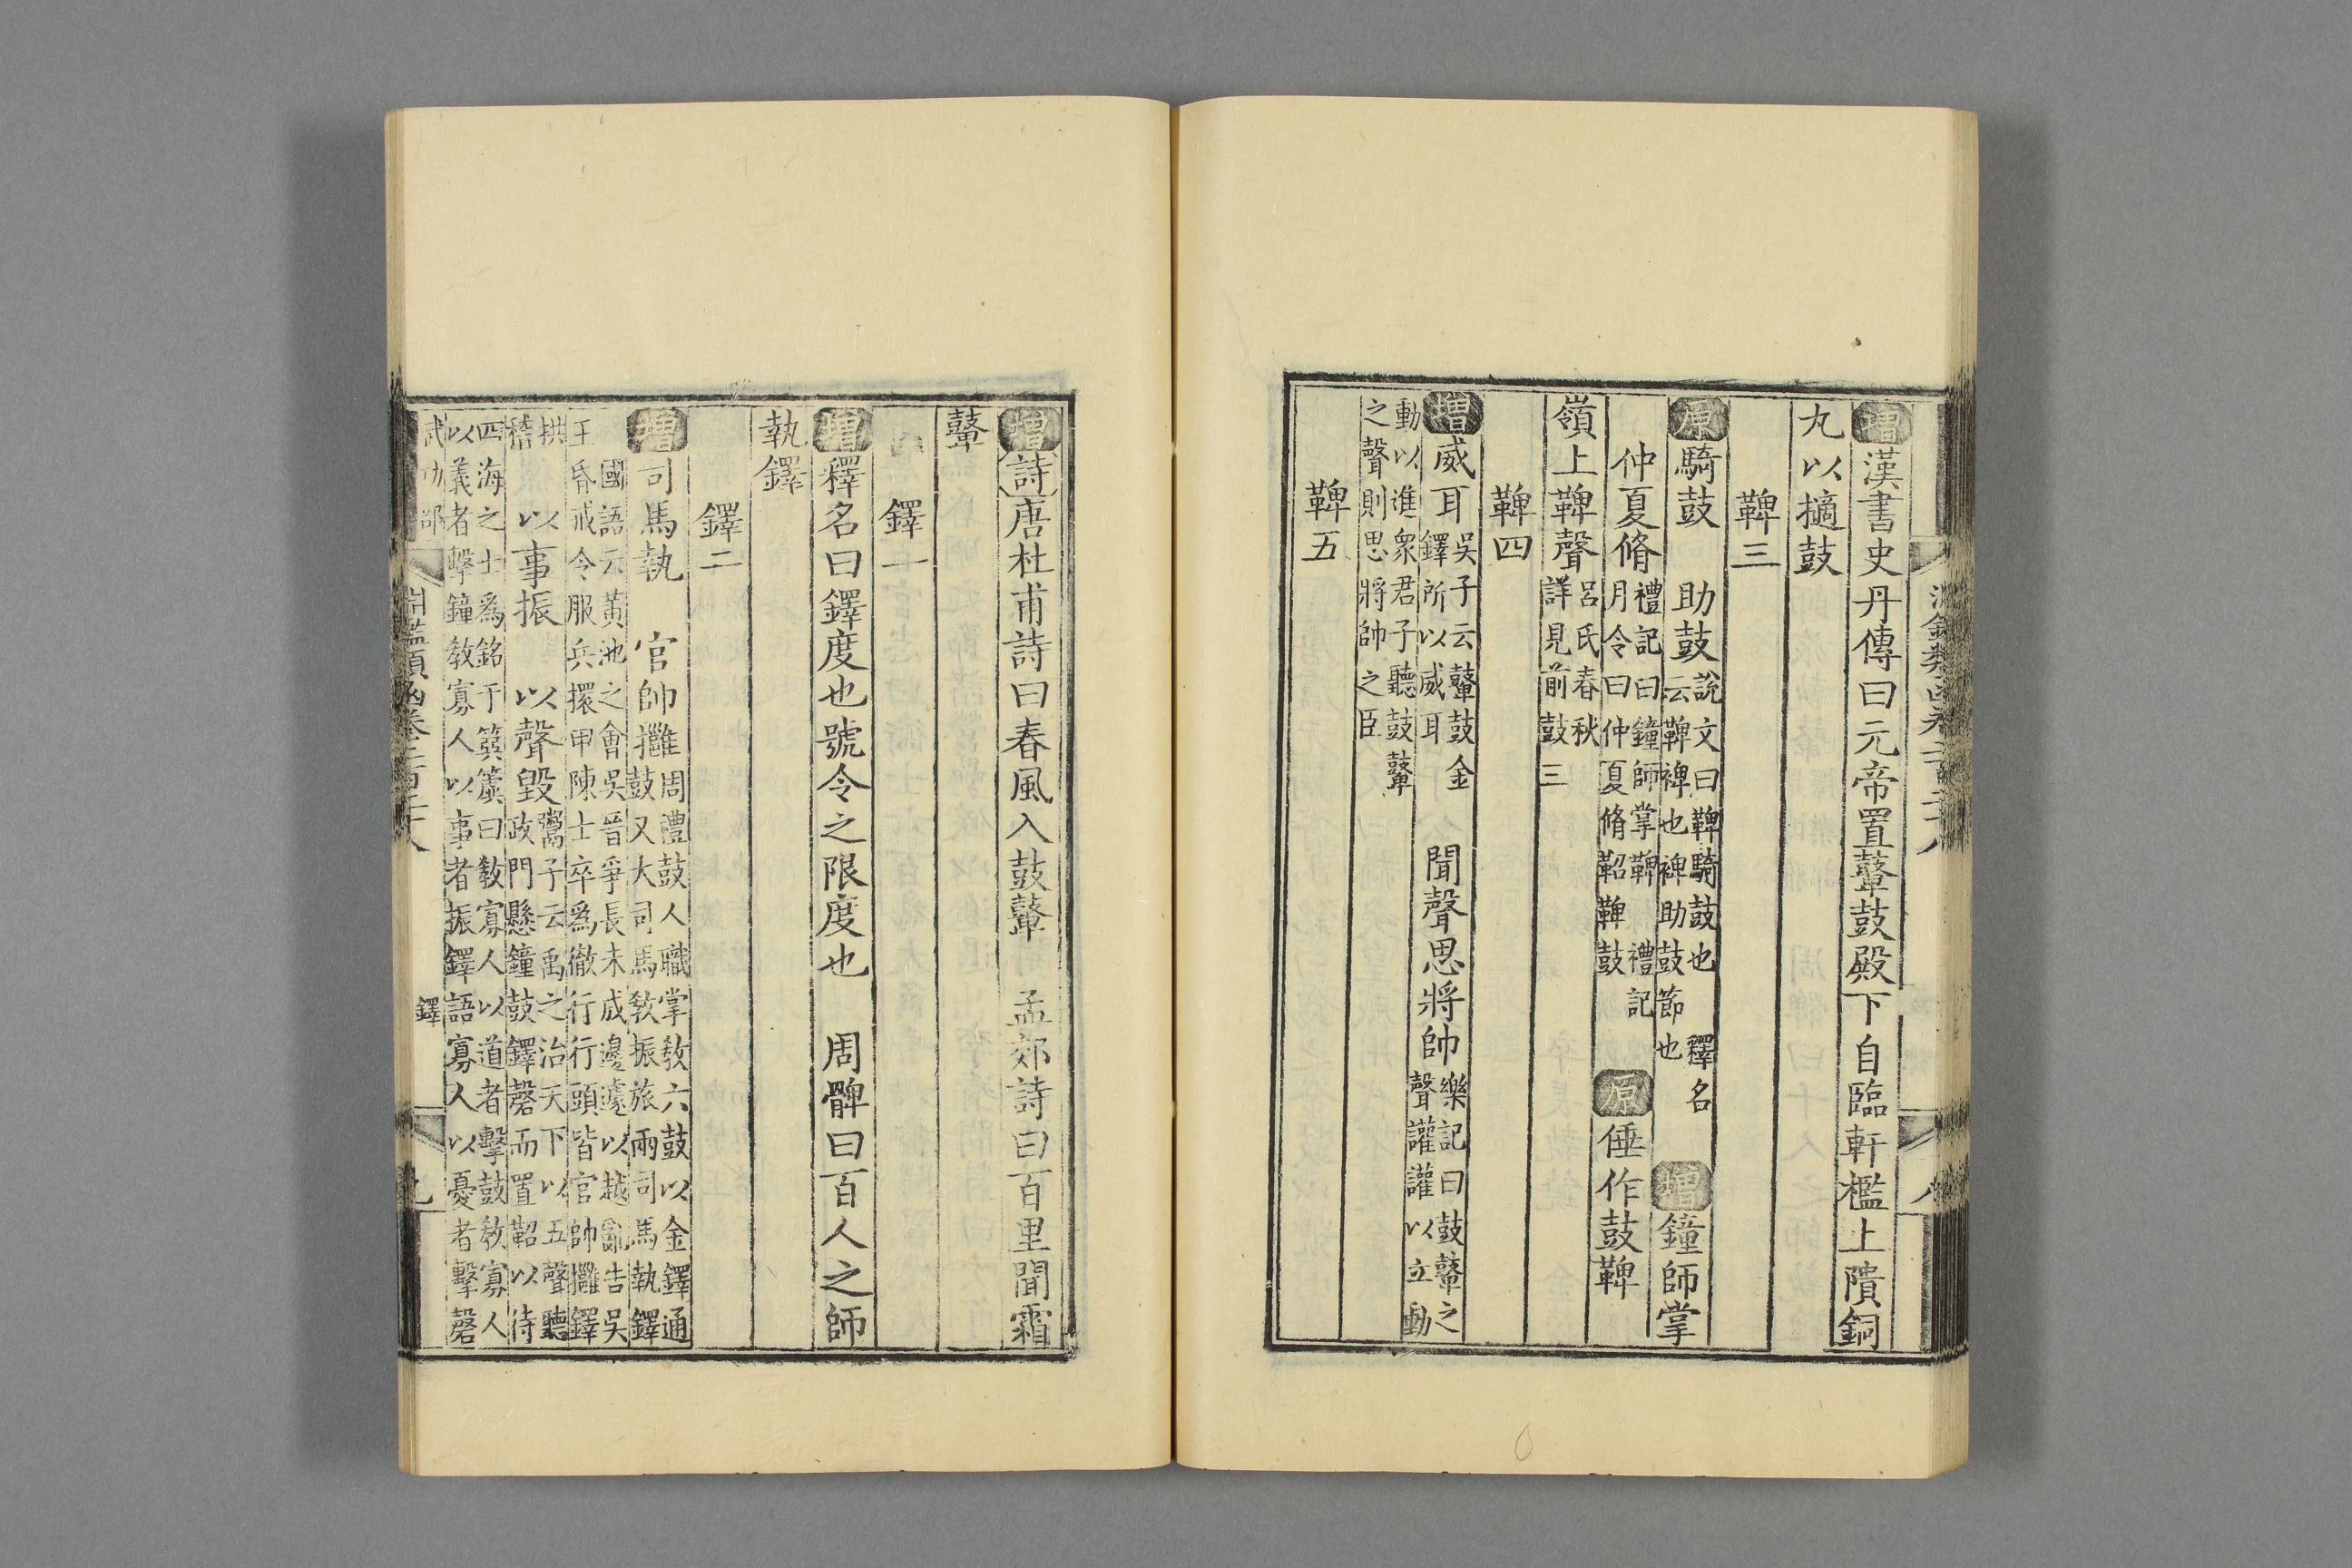 淵鑑類函卷二百二十八
八
增漢書史丹傳曰元帝置鼙鼓殿下自臨軒檻上隤銅
丸以擿鼓
鞞三
原騎鼓 助鼓說文曰鞞騎鼓也 釋名
云鞞裨也裨助鼓節也 增鐘師掌
仲夏脩禮記曰鐘師掌鞞 禮記
月令曰仲夏脩鞀鞞鼓 原倕作鼓鞞
嶺上鞞聲呂氏春秋
詳見前鼓三
鞞四
增威耳吳子云鼙鼓金
鐸所以威耳 聞聲思將帥樂記曰鼓鼙之
聲讙讙以立動
動以進眾君子聽鼓鼙
之聲則思將帥之臣
鞞五
增詩唐杜甫詩曰春風入鼓鼙 孟郊詩曰百里聞霜
鼙
鐸一
增釋名曰鐸度也號令之限度也 周髀曰百人之師
執鐸
鐸二
增司馬執 官帥擁周禮鼓人職掌教六鼓以金鐸通
鼓又大司馬教振旅兩司馬執鐸
國語云黃池之會吳晉爭長未成邊遽以越亂告吳
王昏戒令服兵擐甲陳士卒為徹行行頭皆官帥擁鐸
拱
稽 以事振 以聲毀鬻子云禹之治天下以五聲聽
政門懸鐘鼓鐸磬而置鞀以待
四海之士為銘于簨簴曰教寡人以道者擊鼓教寡人
以義者擊鐘教寡人以事者振鐸語寡人以憂者擊磬
武功部
淵鑑類函卷二百二十八
鐸
九